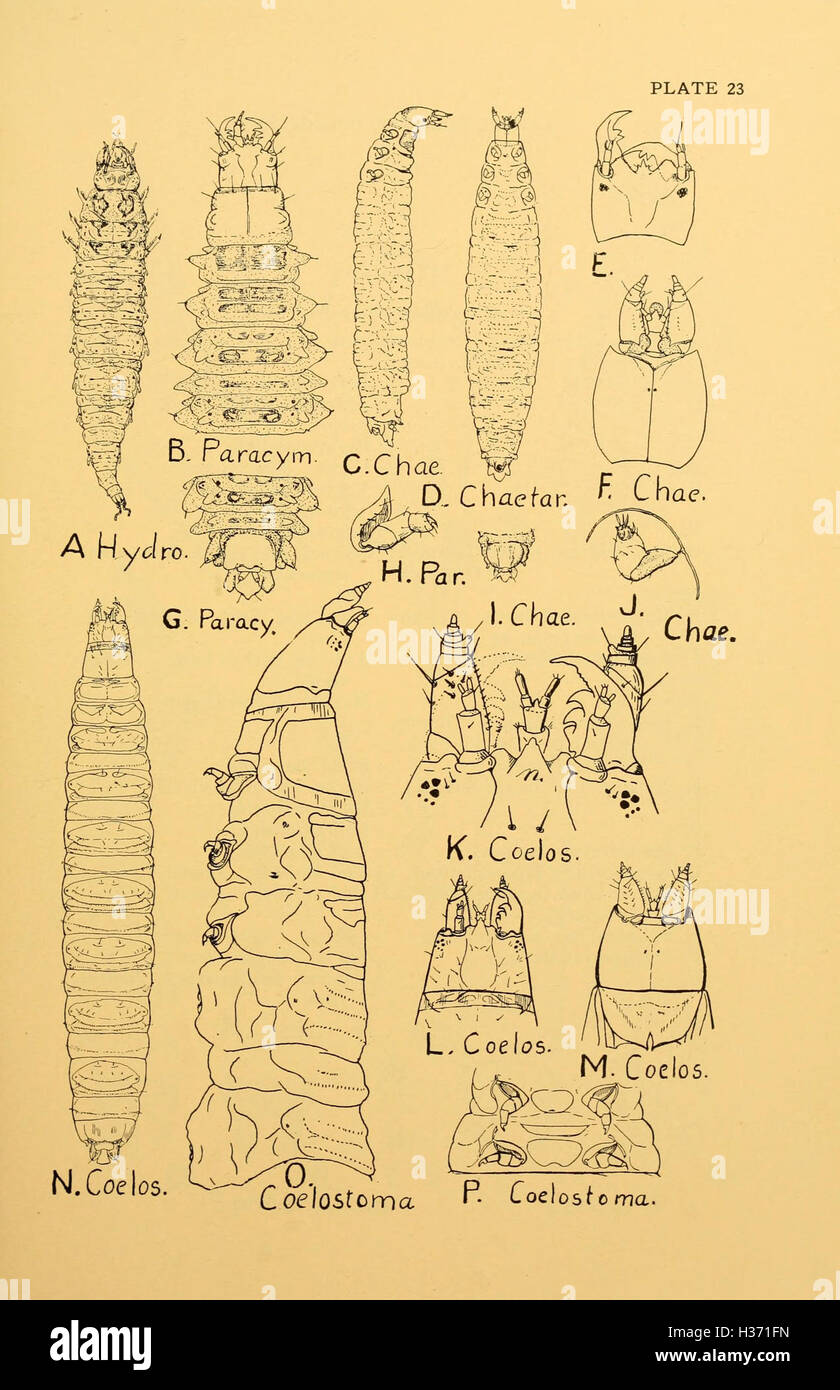 PLATE 23
E.
B. Paracym.
C. Chae
D. Chaetar.
F. Chae.
A Hydro.
H. Par.
I. Chae.
J.
Chae.
G. Paracy.
n.
K. Coelos.
L. Coelos.
M. Coelos.
N. Coelos.
O.
Coelostoma
P. Coelostoma.
alamy
alamy
Image ID: H371FN
www.alamy.com